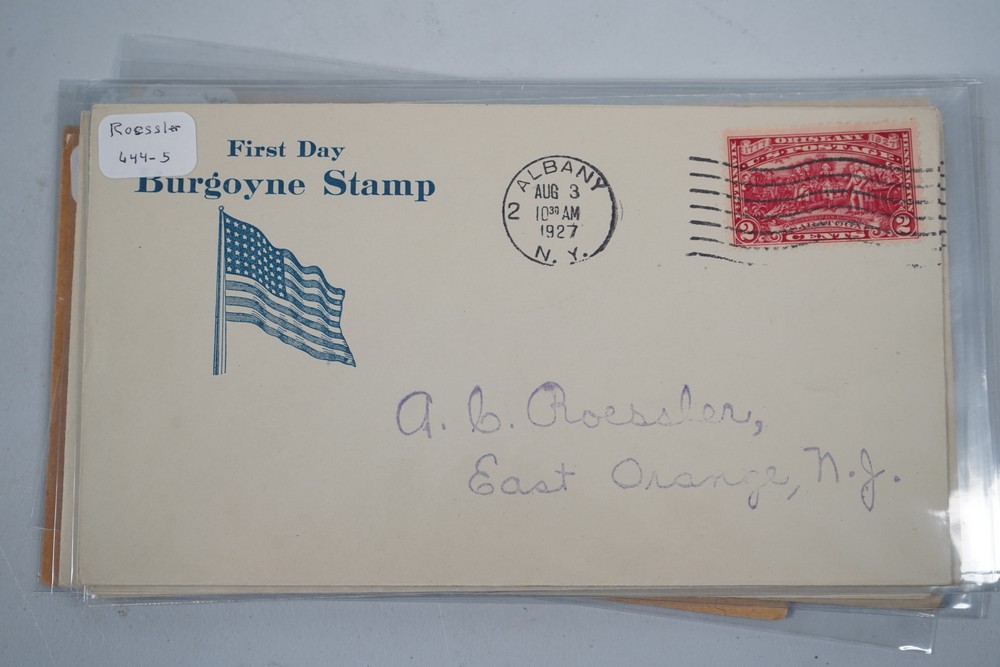 Roessler
644-5
First Day
Burgoyne Stamp
ALBANY
AUG 3
2 10 30 AM
1927
N. Y.
1777 ORISKANY 1927
U.S. POSTAGE
2 2
CENTS
A. C. Roessler,
East Orange, N.J.